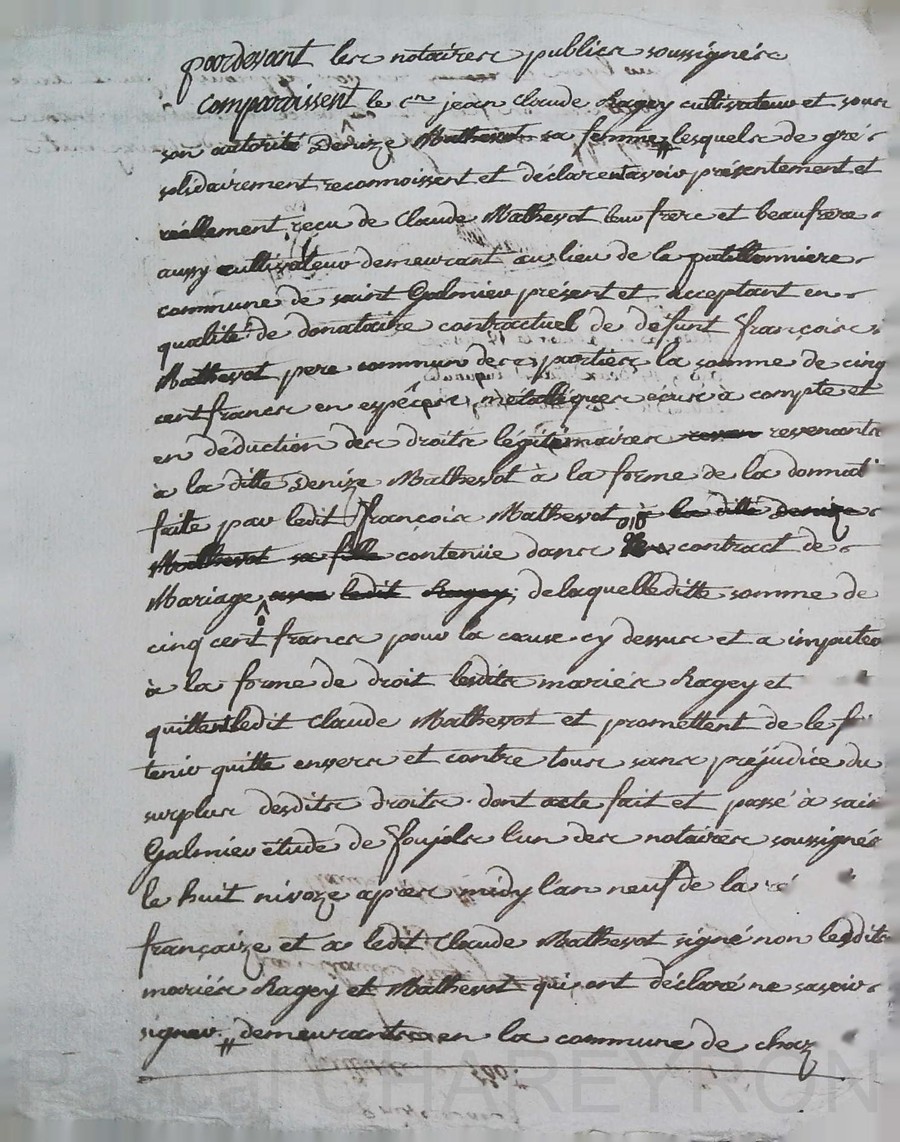 pardevant les notaires publics soussignés
comparaissent le cen jean claude Ragey cultivateur et sous
son autorité Denize Mathevot sa femme lesquels de grés
solidairement reconnoissent et déclarent avoir présentement et
réellement reçu de Claude Mathevot leur frere et beaufrere
aussy cultivateur demeurant au lieu de la patillonniere
commune de saint Galmier présent et acceptant en
qualité de donataire contractuel de défunt françois
Mathevot pere commun des parties la somme de cinq
cent francs en espêces métalliques ecus à compte et
en déduction des droits légitimaires revenants
à la ditte Denize Mathevot à la forme de la donnat
faite par ledit françois Mathevot à la ditte Denize
Mathevot sa fille contenüe dans contract de
Mariage avec ledit Ragey, de laquelleditte somme de
cinq cent francs pour la cause cy dessus et a imputer
à la forme de droit lesdits mariés Ragey et
quittent ledit Claude Mathevot et promettent de le f
tenir quitte envers et contre tous sans préjudice du
surplus desdits droits. dont acte fait et passé à sain
Galmier étude de foujols l'un des notaires soussignés
le huit nivoze apres midy l'an neuf de la ré
françaize et a ledit Claude Mathevot signé non lesdits
mariés Ragey et Mathevot qui ont déclaré ne savoir
signer # demeurants en la commune de chaz
Pascal CHAREYRON